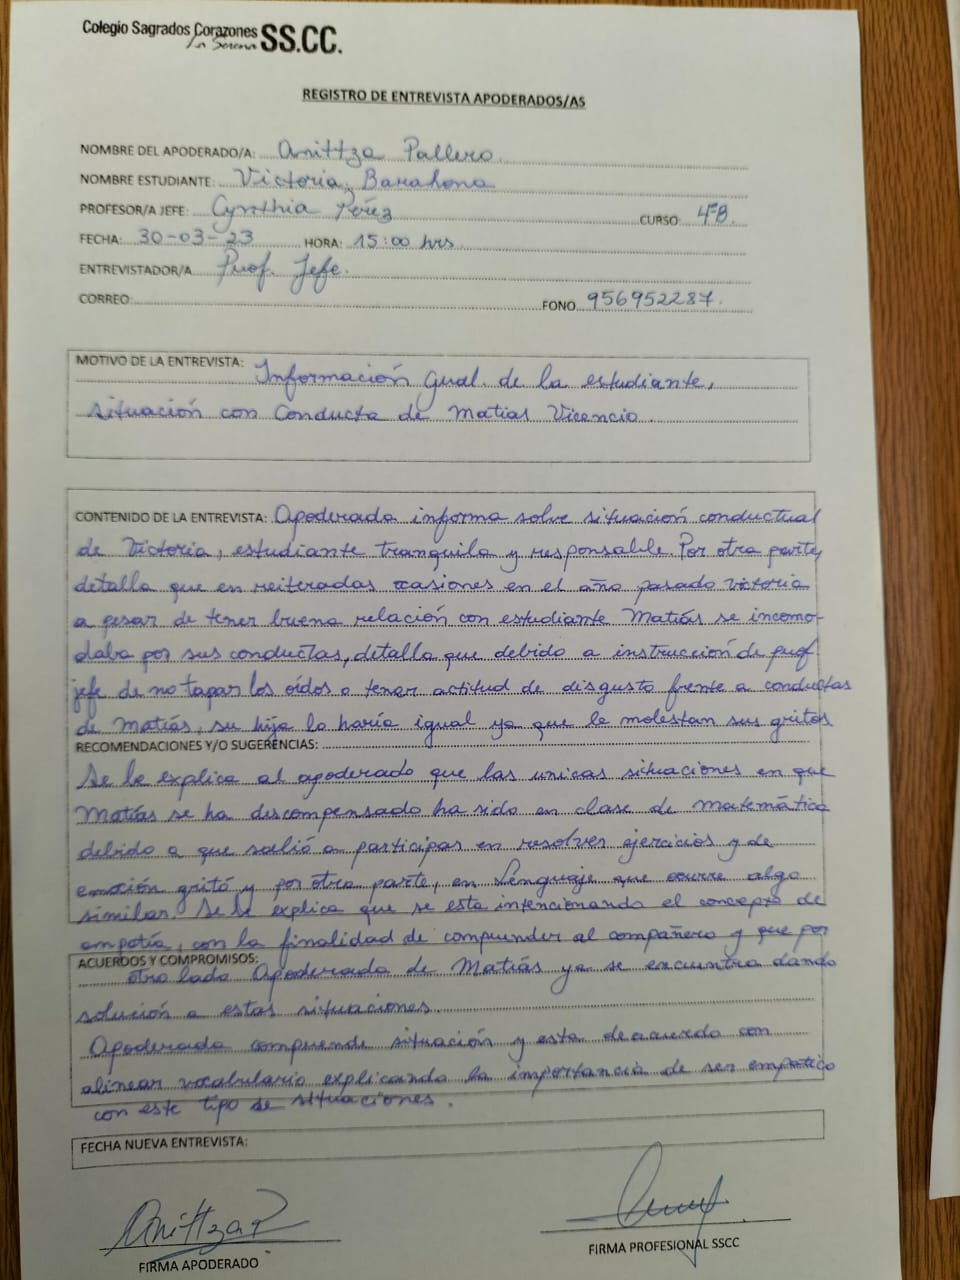 Colegio Sagrados Corazones SS.CC.
La Serena
REGISTRO DE ENTREVISTA APODERADOS/AS
NOMBRE DEL APODERADO/A: Anittza Pallero
NOMBRE ESTUDIANTE: Victoria Barahona
PROFESOR/A JEFE: Cynthia Pérez CURSO 4°B
FECHA: 30-03-23 HORA: 15:00 hrs
ENTREVISTADOR/A Prof. Jefe.
CORREO: FONO 956952287.
MOTIVO DE LA ENTREVISTA: Información gual. de la estudiante,
situación con conducta de Matias Vicencio
CONTENIDO DE LA ENTREVISTA: Apoderada informa sobre situación conductual
de Victoria, estudiante tranquila y responsable. Por otra parte,
detalla que en reiteradas ocasiones en el año pasado Victoria
a pesar de tener buena relación con estudiante Matías se incomo-
daba por sus conductas, detalla que debido a instrucción de prof
jefe de no tapar los oídos o tener actitud de disgusto frente a conductas
de Matías, su hija lo haría igual ya que le molestan sus gritos
RECOMENDACIONES Y/O SUGERENCIAS:
Se le explica al apoderado que las unicas situaciones en que
Matías se ha descompensado ha sido en clase de matemática
debido a que salió a participar en resolver ejercicios y de
emoción gritó y por otra parte, en Lenguaje que ocurre algo
similar. Se le explica que se esta intencionando el concepto de
empatía, con la finalidad de comprender al compañero y que por
ACUERDOS Y COMPROMISOS:
otro lado Apoderada de Matías ya se encuentra dando
solución a estas situaciones.
Apoderada comprende situación y esta de acuerdo con
alinear vocabulario explicando la importancia de ser empatico
con este tipo de situaciones.
FECHA NUEVA ENTREVISTA:
Anittza P
FIRMA APODERADO
FIRMA PROFESIONAL SSCC